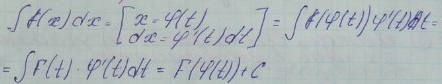 ∫f(x)dx = [x = φ(t) dx = φ'(t)dt] = ∫f(φ(t))φ'(t)dt =
= ∫F(t) · φ'(t)dt = F(φ(t)) + C